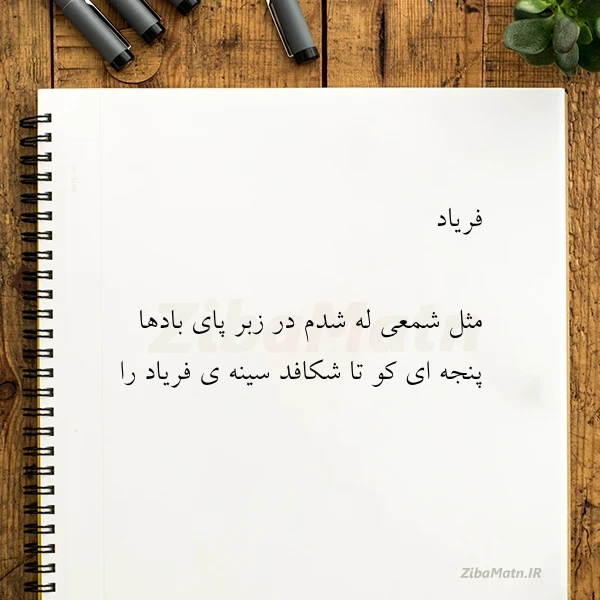 فریاد
مثل شمعی له شدم در زبر پای بادها
پنجه ای کو تا شکافد سینه ی فریاد را
ZibaMatn
ZibaMatn.IR